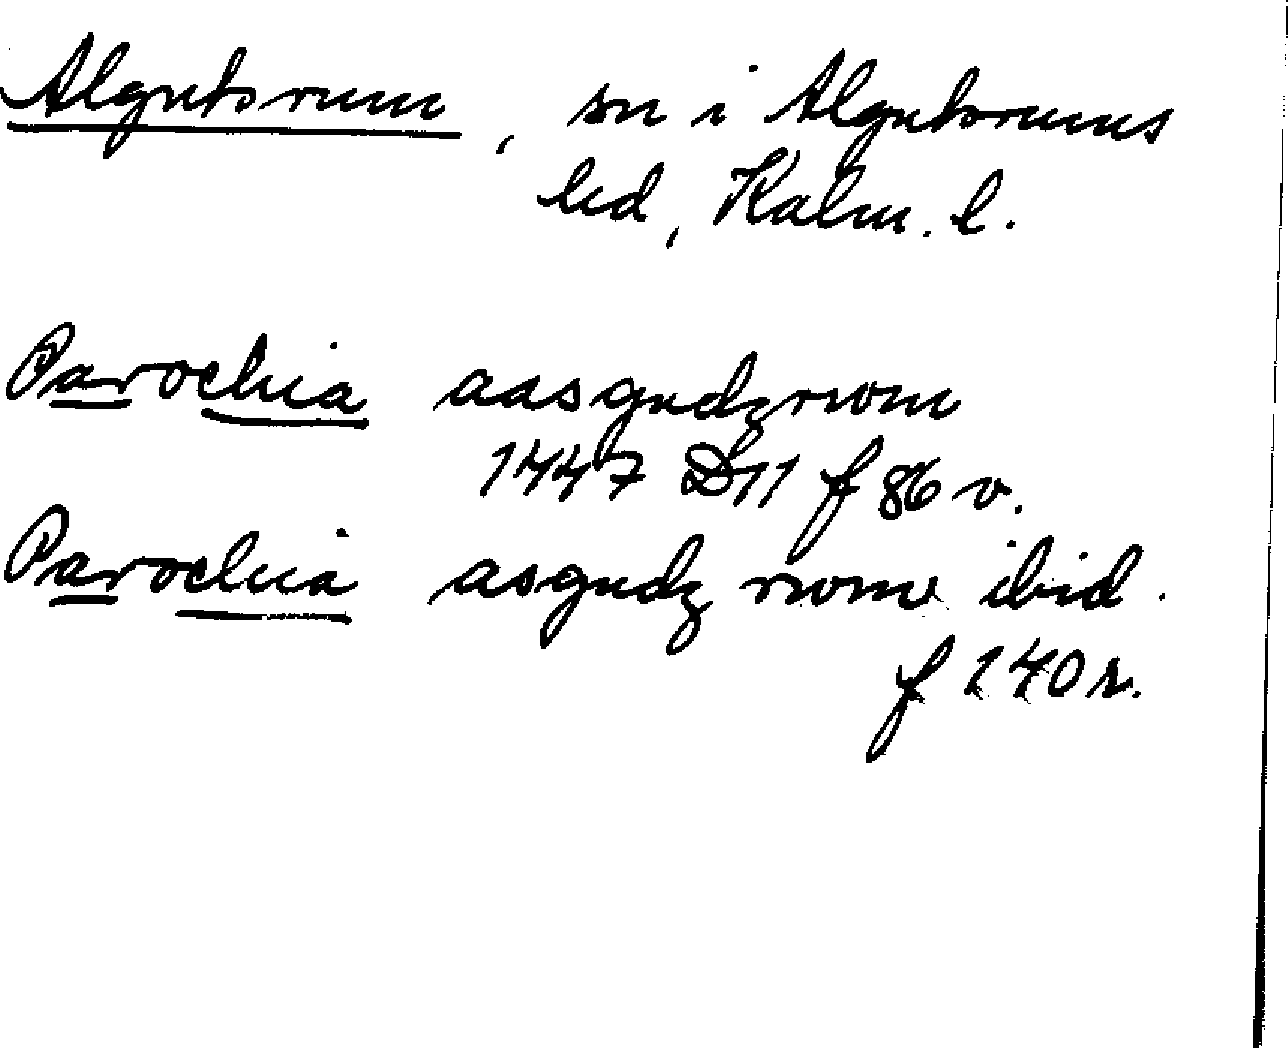 Algutsrum, sn i Algutsrums
hd, Kalm. l.
Parochia aasgudzrwm
1447 D11 f 86 v.
Parochia asgudz rwm ibid.
f 140 r.